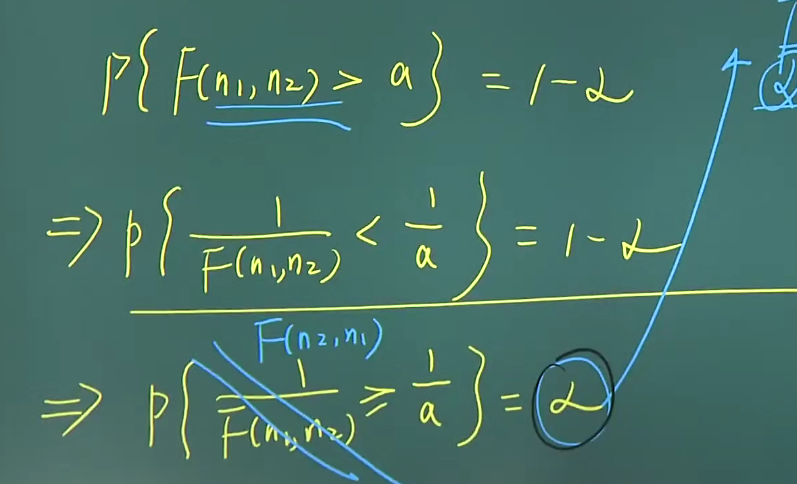 P{F(n₁,n₂) > a} = 1-α
⇒ P{1/F(n₁,n₂) < 1/a} = 1-α
F(n₂,n₁)
⇒ P{1/F(n₁,n₂) ≥ 1/a} = α